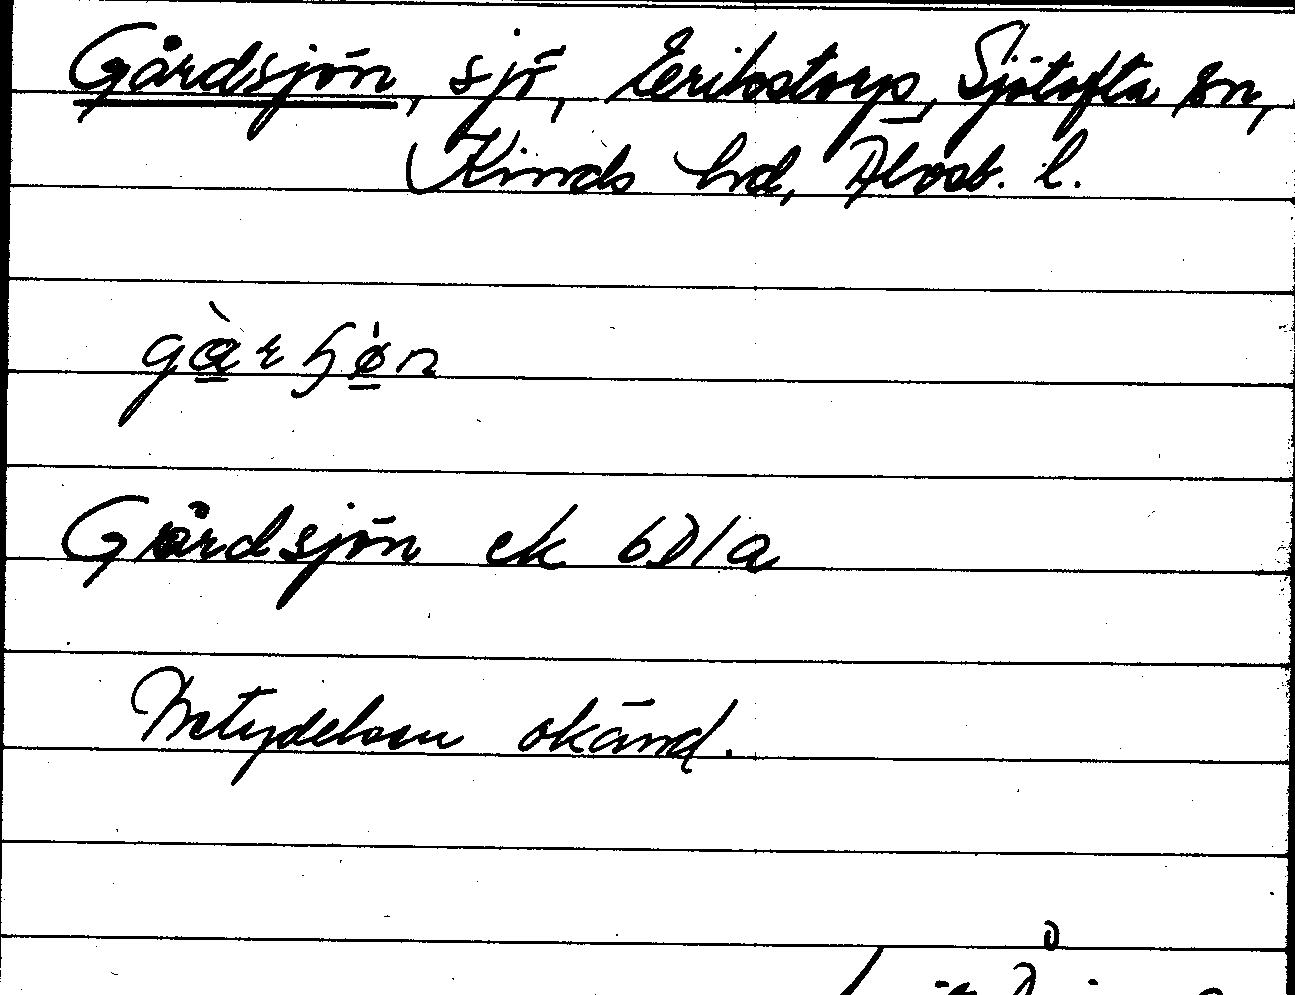 Gårdsjön, sjö, Erikstorp, Sjötofta sn,
Kinds hd, Älvsb. l.
gàrʃø̀n
Gårdsjön ek 6D1a
Betydelsen okänd.